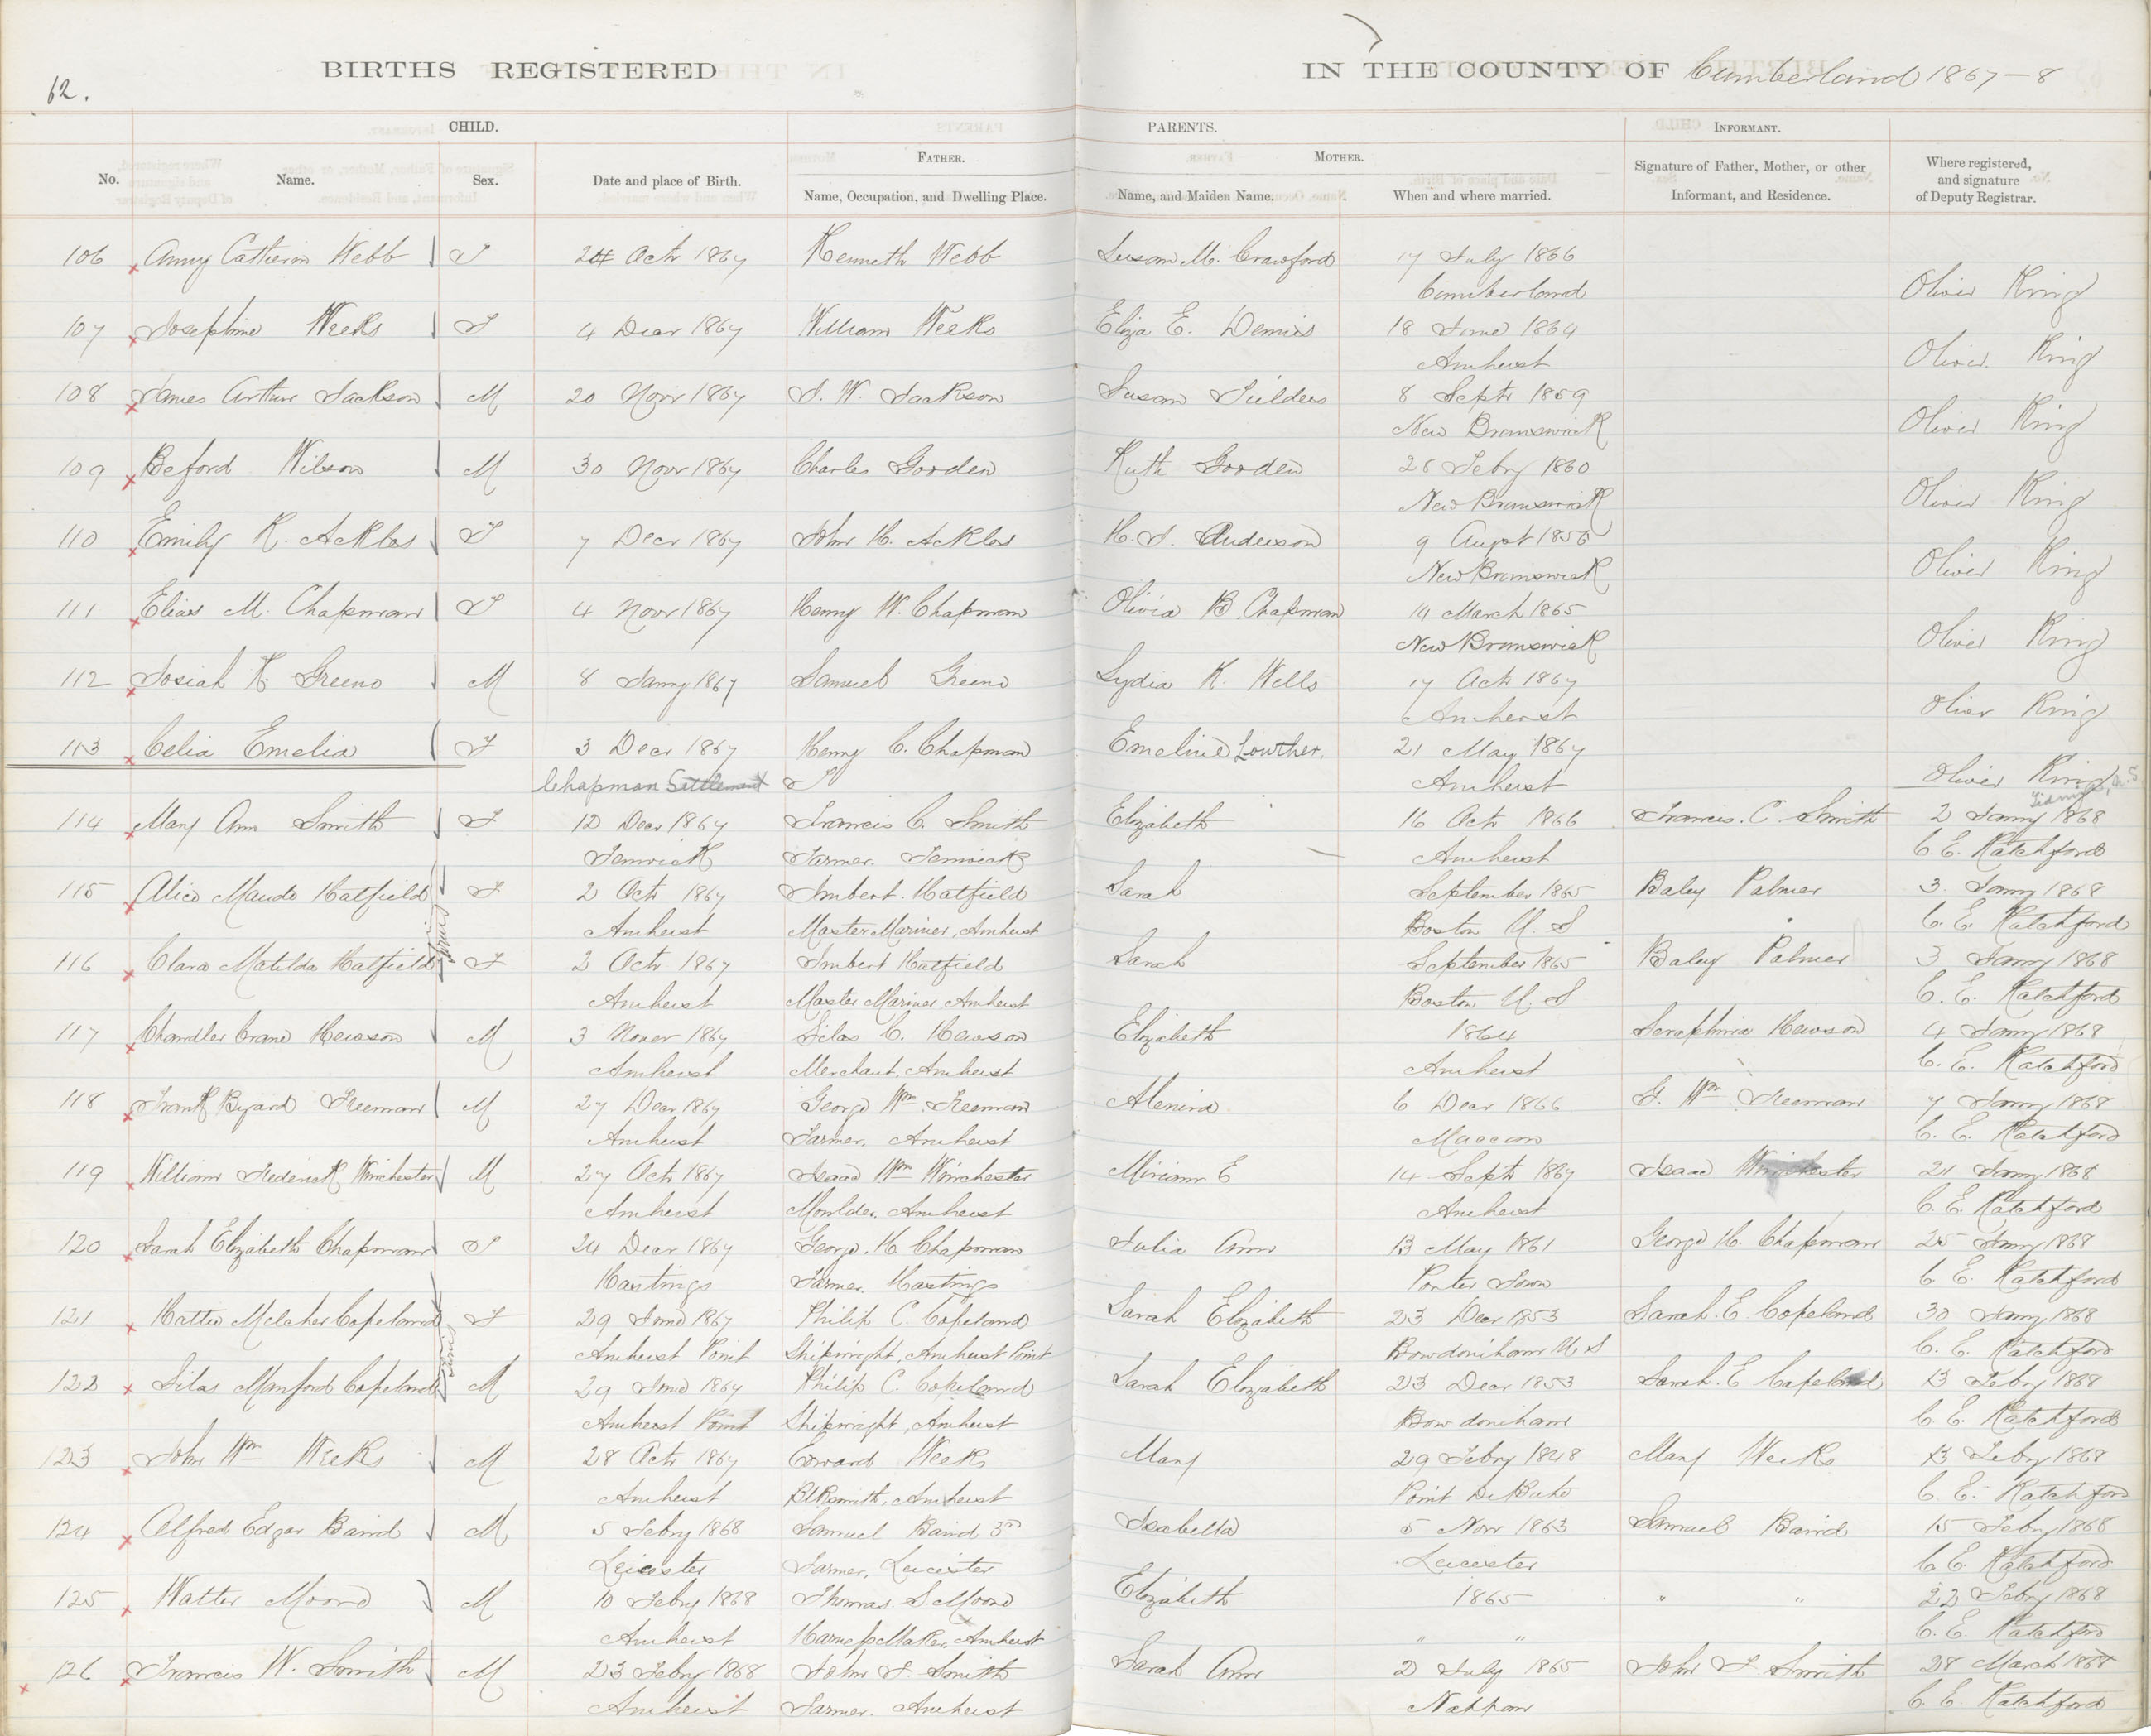 62.
BIRTHS REGISTERED IN THE COUNTY OF Cumberland 1867-8
CHILD. PARENTS. INFORMANT.
FATHER. MOTHER.
No. Name. Sex. Date and place of Birth. Name, Occupation, and Dwelling Place. Name, and Maiden Name. When and where married. Signature of Father, Mother, or other Informant, and Residence. Where registered, and signature of Deputy Registrar.
106 Anny Catherin Webb F 24 Octr 1867 Kenneth Webb Susan M. Crawford 17 July 1866
Cumberland Oliver King
107 Josephine Weeks F 4 Decr 1867 William Weeks Eliza E. 18 June 1864
Amherst Oliver King
108 James Arthur Jackson M 20 Novr 1867 J. W. Jackson Susan 8 Septr 1859
New Brunswick Oliver King
109 Beford Wilson M 30 Novr 1867 Charles Gorden Ruth Gorden Febry 1860
New Brunswick Oliver King
110 Emily R. Ackles F 7 Decr 1867 John H. Ackles H. J. Anderson 9 Augst
New Brunswick Oliver King
111 Elias M. Chapman F 4 Novr 1867 Henry W. Chapman Olivia B. Chapman March 1865
New Brunswick Oliver King
112 Josiah K. Greeno M 8 Janry 1867 Samuel Greeno Lydia K. Wells 17 Octr 1867
Amherst Oliver King
113 Celia Emelia F 3 Decr 1867 Henry C. Chapman Emeline Lowther. 21 May 1867
Chapman Settlement Amherst Oliver King
114 Mary Ann Smith F 12 Decr 1867 Francis C. Smith Elizabeth 16 Octr 1866 Francis. C. Smith 2 Janry 1868
Fenwick Farmer. Fenwick Amherst C. E. Ratchford
115 Alice Maude Hatfield F 2 Octr 1867 Imbert. Hatfield Sarah September 1865 Baley Palmer 3. Janry 1868
twins
Amherst Master Mariner, Amherst Boston U. S C. E. Ratchford
116 Clara Matilda Hatfield F 2 Octr 1867 Imbert Hatfield Sarah September 1865 Baley Palmer 3 Janry 1868
Amherst Master Mariner, Amherst Boston U. S C. E. Ratchford
117 Chandler Crane Hewson M 3 Nover 1867 Silas C. Hewson Elizabeth 1864 Seraphina Hewson 4 Janry 1868
Amherst Merchant, Amherst Amherst C. E. Ratchford
118 Frank Byard Freeman M 27 Decr 1867 George Wm. Freeman Almira 6 Decr 1866 G. Wm Freeman 7 Janry 1868
Amherst Farmer, Amherst Maccan C. E. Ratchford
119 William Frederick Winchester M 27 Octr 1867 Isaac Wm Winchester Miriam E 14 Septr 1867 Isaac Winchester 21 Janry 1868
Amherst Moulder. Amherst Amherst C. E. Ratchford
120 Sarah Elizabeth Chapman F 24 Decr 1867 George. H. Chapman Julia Ann 13 May 1861 George H. Chapman 25 Janry 1868
Hastings Farmer. Hastings Porter Town C. E. Ratchford
121 Hattie Melcher Copeland F 29 June 1867 Philip C. Copeland Sarah Elizabeth 23 Decr 1853 Sarah. E. Copeland 30 Janry 1868
twins
Amherst Point Shipwright, Amherst Point Bowdoinham U. S C. E. Ratchford
122 Silas Manford Copeland M 29 June 1867 Philip C. Copeland Sarah Elizabeth 23 Decr 1853 Sarah. E Copeland 13 Febry 1868
Amherst Point Shipwright, Amherst Bowdoinham C. E. Ratchford
123 John Wm Weeks M 28 Octr 1867 Edward Weeks Mary 29 Febry 1848 Mary Weeks 13 Febry 1868
Amherst Blksmith, Amherst Point De Bute C. E. Ratchford
124 Alfred Edgar Baird M 5 Febry 1868 Samuel Baird 3rd Isabella 5 Novr 1863 Samuel Baird 15 Febry 1868
Leicester Farmer, Leicester Leicester C. E. Ratchford
125 Walter Moore M 10 Febry 1868 Thomas. S. Moore Elizabeth 1865 " " 22 Febry 1868
Amherst Harness Maker, Amherst " " C. E. Ratchford
126 Francis W. Smith M 23 Febry 1868 John F. Smith Sarah Ann 2 July 1865 John F. Smith 28 March 1868
Amherst Farmer. Amherst Nappan C. E. Ratchford